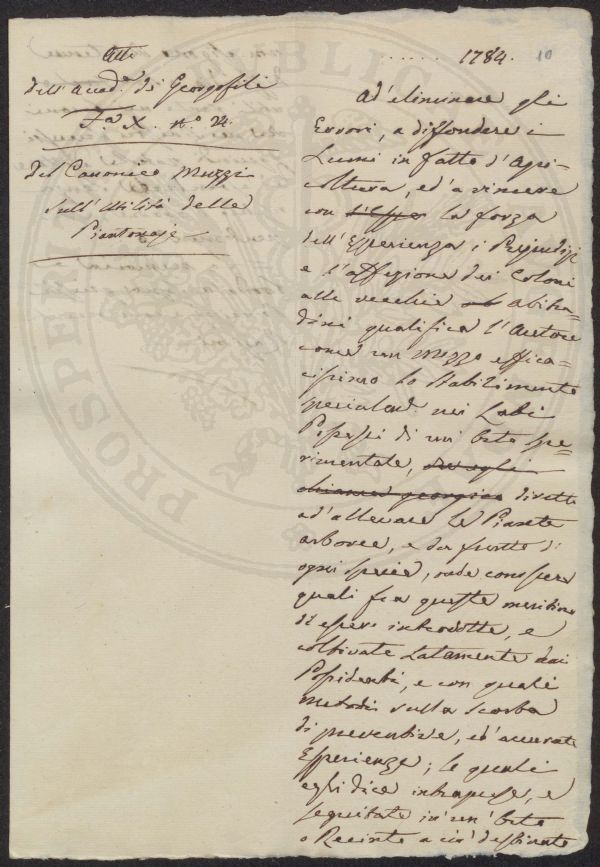 Atti
dell'Accad.a dei Georgofili
F.a X. n.o 24.
del Canonico Muzzi
sull'Utilità delle
Piantonaje
1784. 10
Ad'eliminare gli
Errori, a diffondere i
Lumi in fatto d'Agri-
coltura, ed'a vincere
con la forza
dell'Esperienza i Pregiudizj
e l'affezione dei Coloni
alle vecchie abitu=
dini qualifica l'Autore
come un mezzo effica=
cissimo lo stabilimento
nei
di un' Orto spe=
rimentale, diretto
ad'allevare le Piante
arboree, e da frutto di
ogni specie, onde conoscere
quali fra queste meritino
di essere introdotte, e
coltivate Latamente dai
Possidenti, e con quali
metodi sulla scorta
di preventive, ed'accurate
Esperienze; le quali
egli dice intraprese, e
seguitate in'un'Orto
o Recinto a ciò destinato
PROSPERI PUBLIC